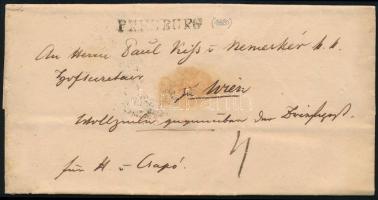 PRESBURG
An Herrn Paul Kiss v Nemeskér k. k.
Hofsecretair
zu Wien
Wollzeile gegenüber der Briefpost.
für H v Csapó.